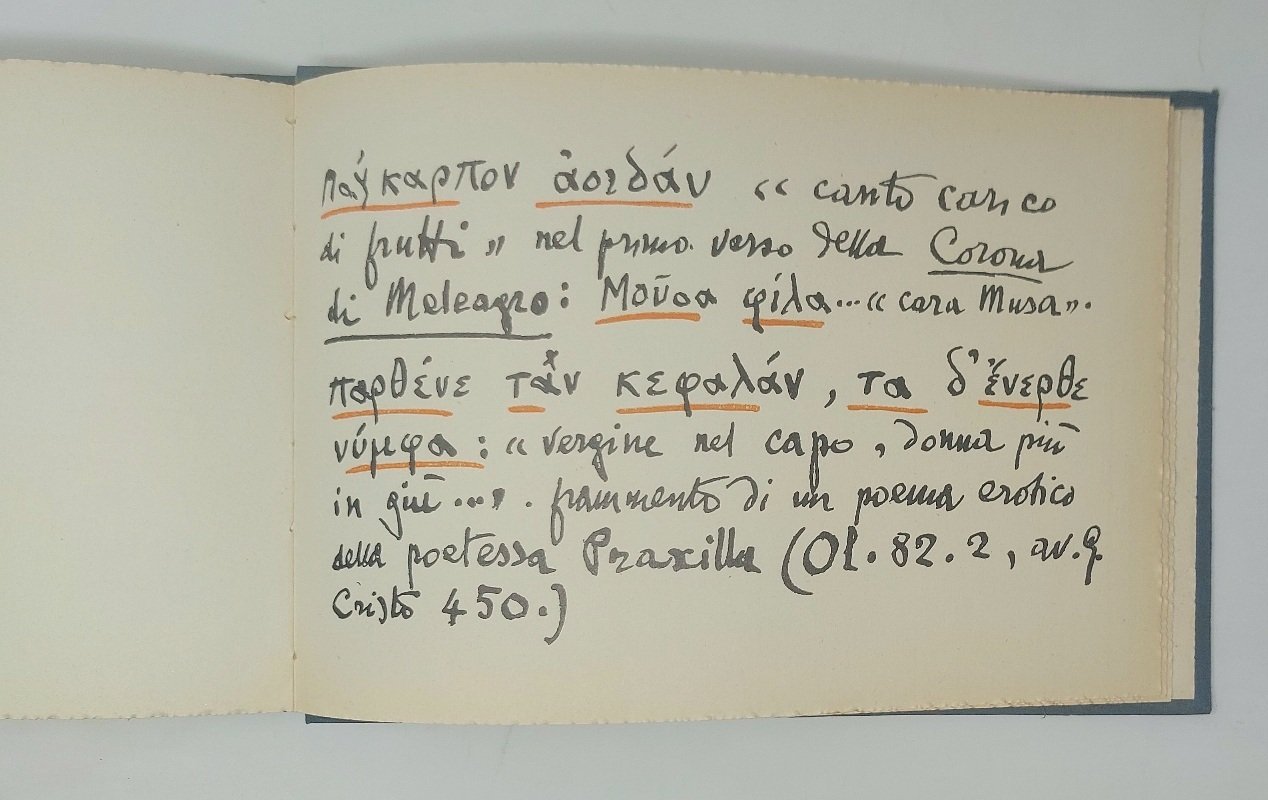 πάγκαρπον ἀοιδάν « canto carico
di frutti » nel primo verso della Corona
di Meleagro: Μοῦσα φίλα... « cara Musa ».
παρθένε τὰν κεφαλάν, τα δ' ἔνερθε
νύμφα: « vergine nel capo, donna più
in giù ... ». frammento di un poema erotico
della poetessa Praxilla (Ol. 82. 2, av. G.
Cristo 450.)